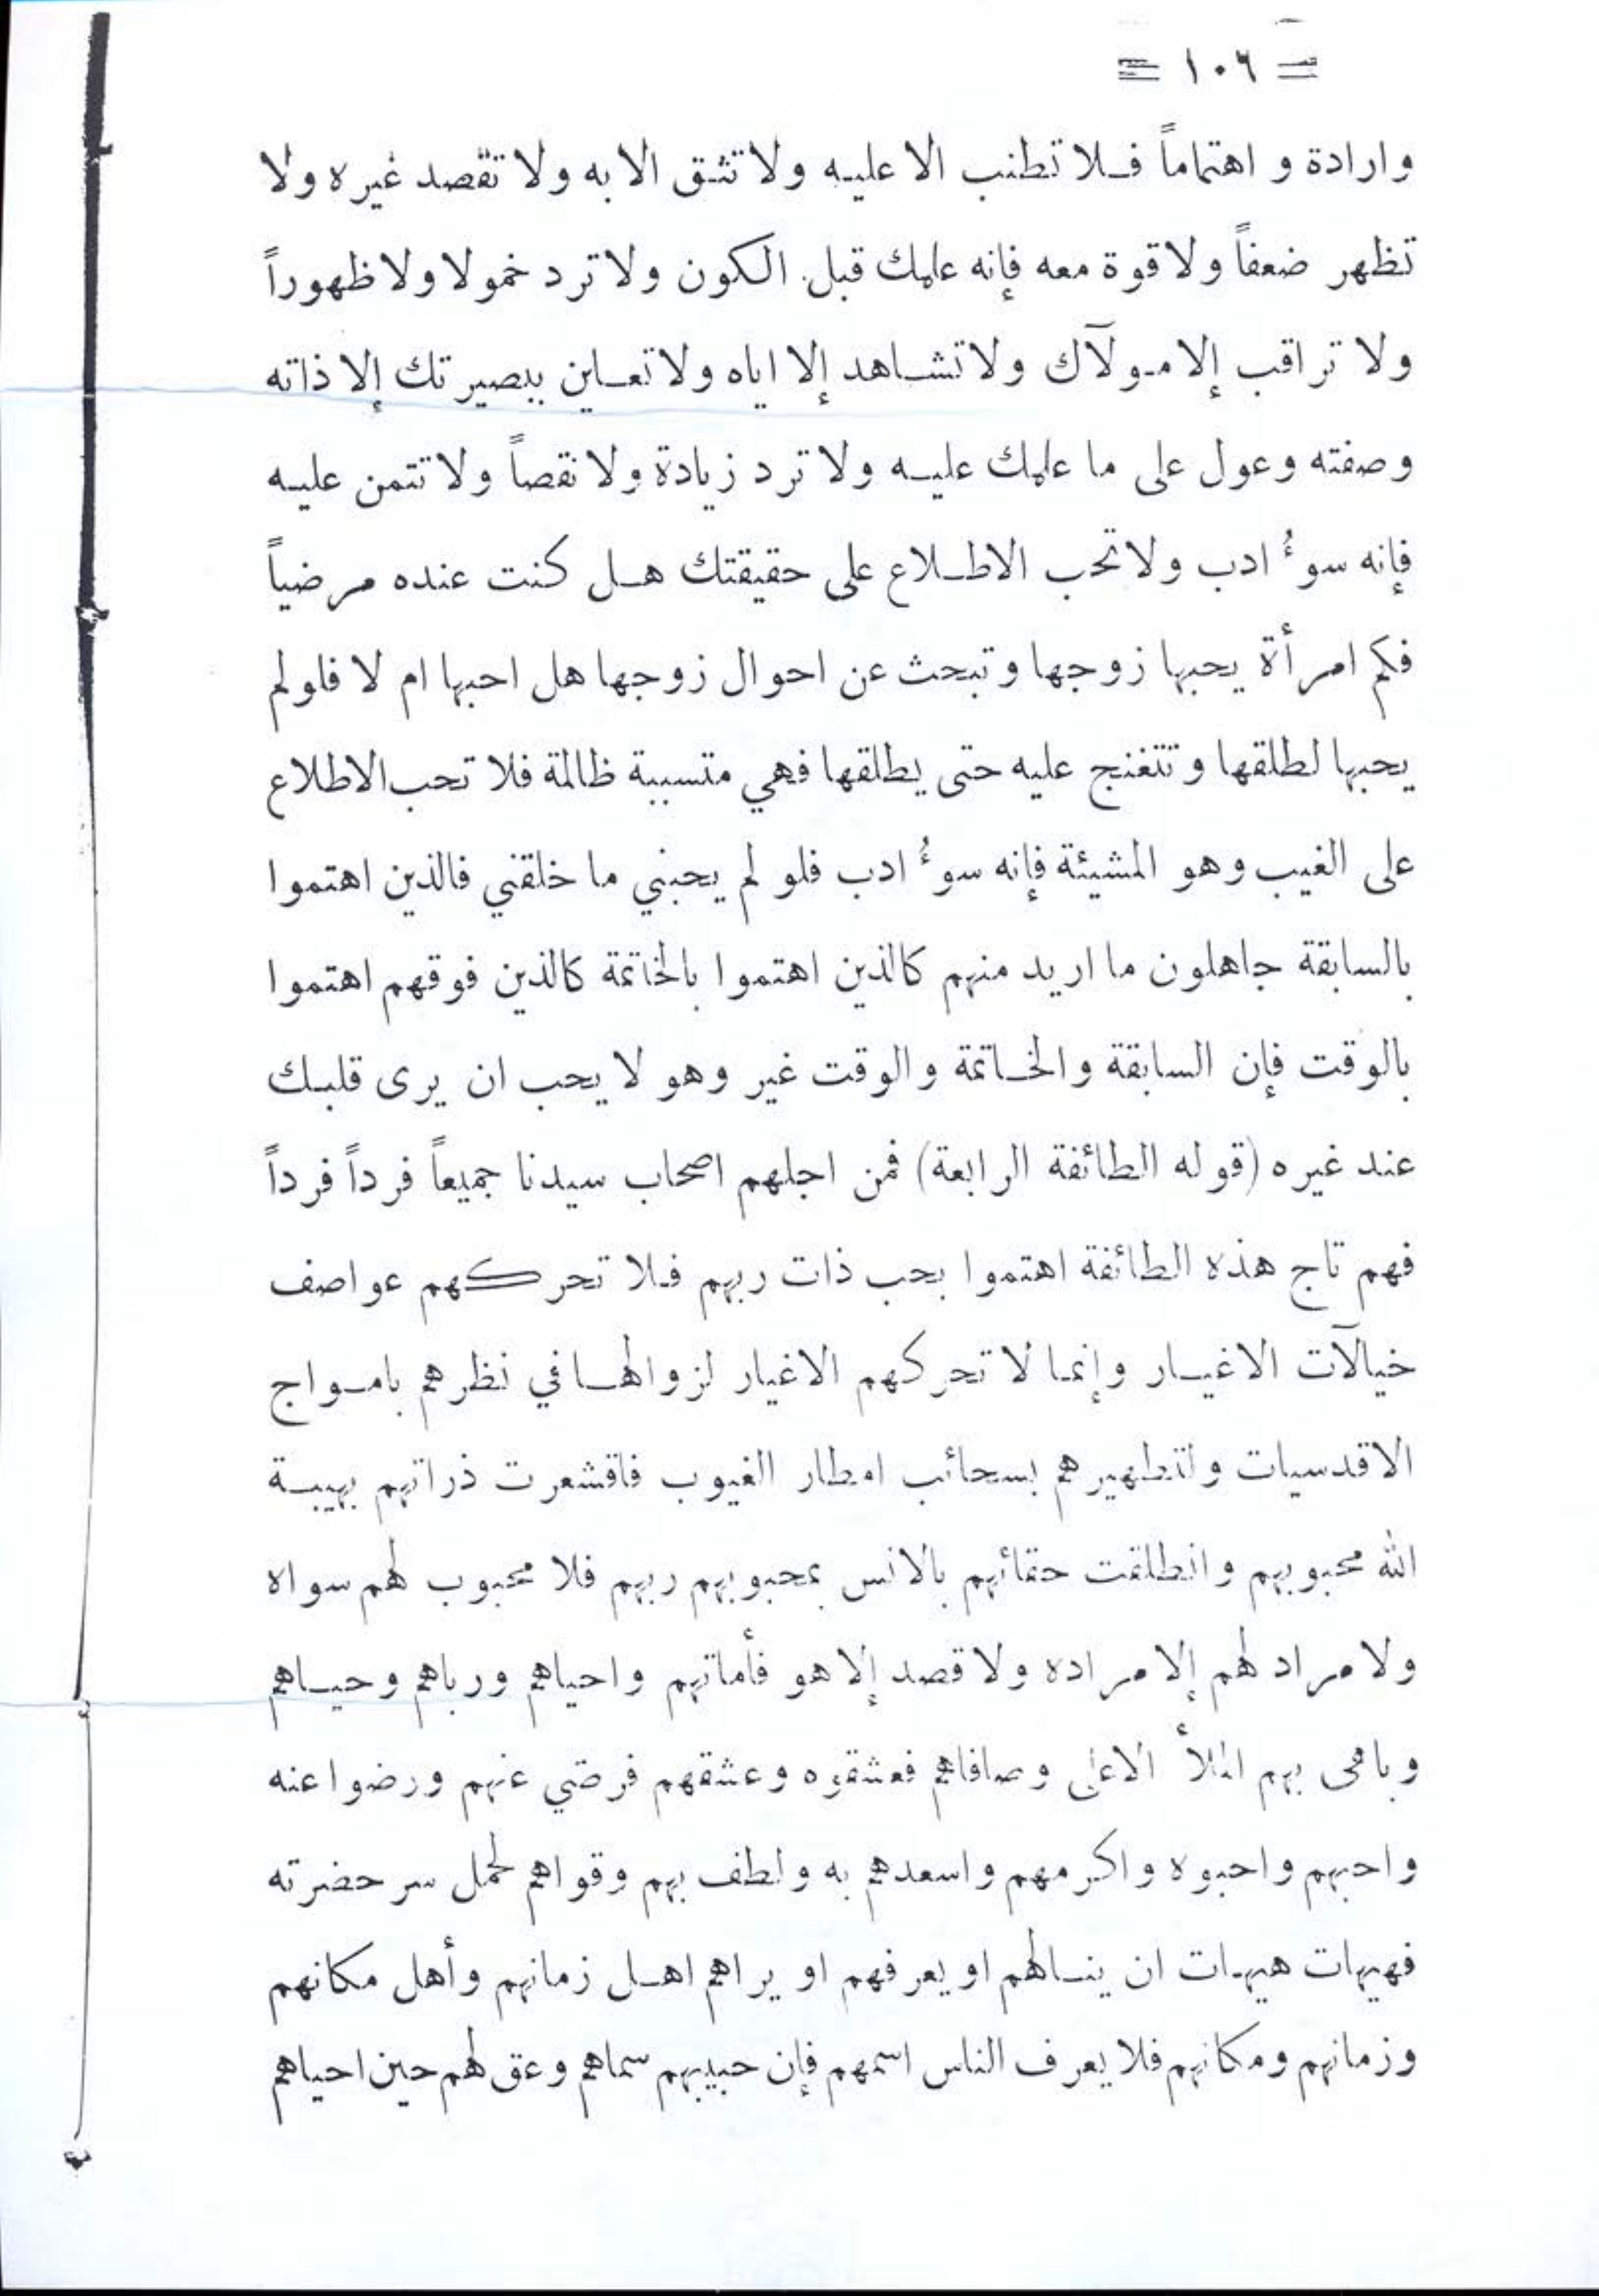 = ١٠٦ =
وارادة و اهتماماً فلا تطنب الا عليه ولا تثق الا به ولا تقصد غيره ولا
تظهر ضعفاً ولا قوة معه فإنه علمك قبل الكون ولا ترد خمولا ولا ظهوراً
ولا تراقب إلا مولآك ولا تشاهد إلا اياه ولا تعاين ببصيرتك إلا ذاته
وصفته وعول على ما علمك عليه ولا ترد زيادة ولا نقصاً ولا تتمن عليه
فإنه سوءُ ادب ولا تحب الاطلاع على حقيقتك هل كنت عنده مرضياً
فكم امرأة يحبها زوجها وتبحث عن احوال زوجها هل احبها ام لا فلو لم
يحبها لطلقها وتتغنج عليه حتى يطلقها فهي متسببة ظالمة فلا تحب الاطلاع
على الغيب وهو المشيئة فإنه سوءُ ادب فلو لم يحبني ما خلقني فالذين اهتموا
بالسابقة جاهلون ما اريد منهم كالذين اهتموا بالخاتمة كالذين فوقهم اهتموا
بالوقت فإن السابقة والخاتمة والوقت غير وهو لا يحب ان يرى قلبك
عند غيره (قوله الطائفة الرابعة) فمن اجلهم اصحاب سيدنا جميعاً فرداً فرداً
فهم تاج هذه الطائفة اهتموا بحب ذات ربهم فلا تحركهم عواصف
خيالآت الاغيار وإنما لا تحركهم الاغيار لزوالها في نظرهم بامواج
الاقدسيات ولتطهيرهم بسحائب امطار الغيوب فاقشعرت ذراتهم بهيبة
الله محبوبهم وانطلقت حقائهم بالانس بمحبوبهم ربهم فلا محبوب لهم سواه
ولا مراد لهم إلا مراده ولا قصد إلا هو فأماتهم واحياهم ورباهم وحياهم
وباهى بهم الملأ الاعلى وصافاهم فعشقوه وعشقهم فرضي عنهم ورضوا عنه
واحبهم واحبوه واكرمهم واسعدهم به ولطف بهم وقواهم لحمل سر حضرته
فهيهات هيهات ان ينالهم او يعرفهم او يراهم اهل زمانهم وأهل مكانهم
وزمانهم ومكانهم فلا يعرف الناس اسمهم فإن حبيبهم سماهم وعق لهم حين احياهم